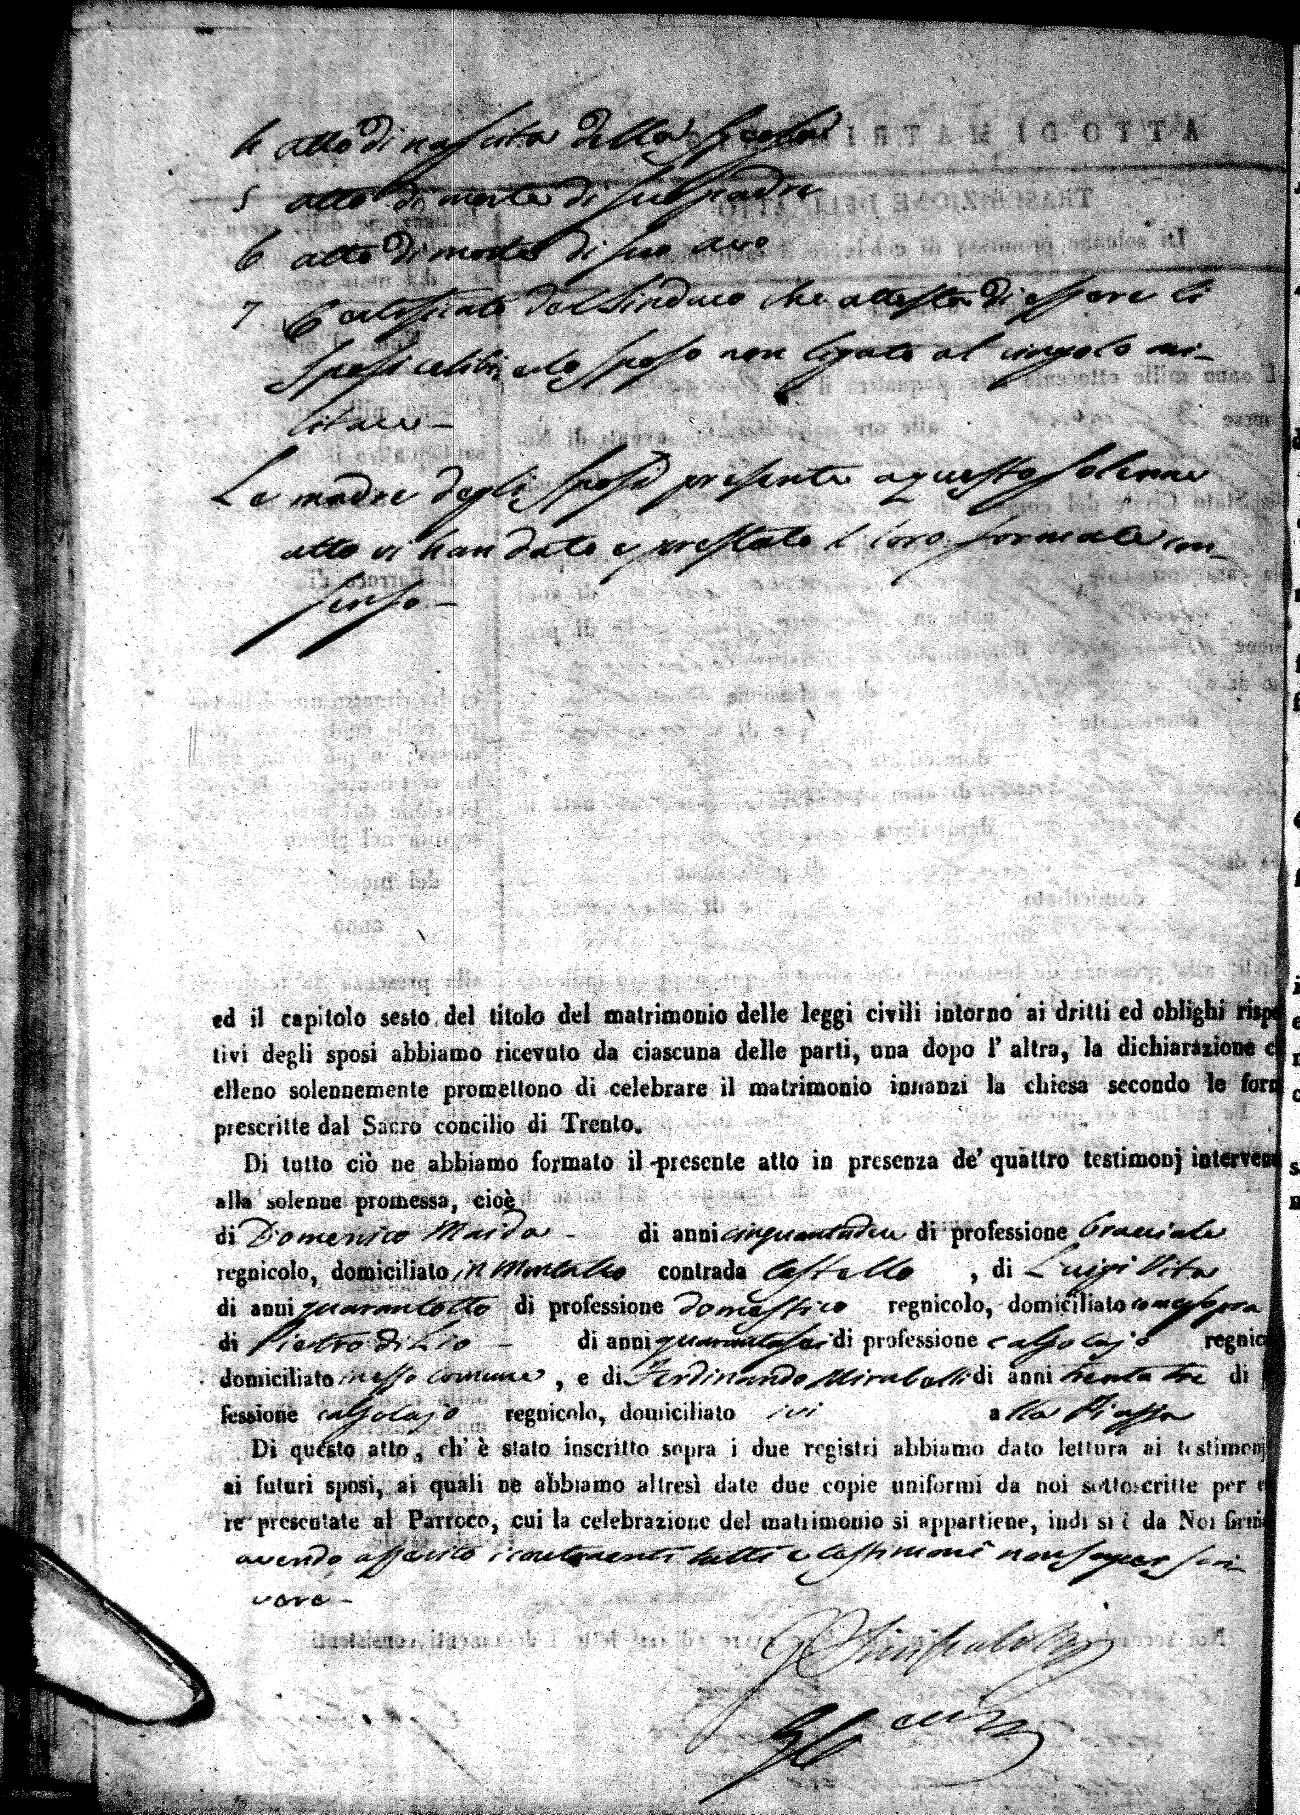 4 atto di nascita della sposa
5 atto di morte di suo padre
6 atto di morte di suo avo
7 Certificato del Sindaco che attesta di essere li
sposi celibi, e lo sposo non ligato al cingolo mi-
litare -
Le madre degli sposi presente a questo solenne
atto vi han dato e prestato il loro formale con-
senso -
ed il capitolo sesto del titolo del matrimonio delle leggi civili intorno ai dritti ed oblighi rispe
tivi degli sposi abbiamo ricevuto da ciascuna delle parti, una dopo l' altra, la dichiarazione c
elleno solennemente promettono di celebrare il matrimonio innanzi la chiesa secondo le form
prescritte dal Sacro concilio di Trento.
Di tutto ciò ne abbiamo formato il presente atto in presenza de' quattro testimonj interven
alla solenne promessa, cioè
di Domenico Maida - di anni cinquantadue di professione bracciale
regnicolo, domiciliato in contrada Castello , di Luigi Vita
di anni quarantotto di professione domestico regnicolo, domiciliato come sopra
di Pietro di Lio - di anni quarantasei di professione calzolajo regnic
domiciliato in esso comune , e di Ferdinando Mirabelli di anni trenta tre di
fessione calzolajo regnicolo, domiciliato ivi alla Piazza
Di questo atto, ch' è stato inscritto sopra i due registri abbiamo dato lettura ai testimonj
ai futuri sposi, ai quali ne abbiamo altresì date due copie uniformi da noi sottoscritte per e
re presentate al Parroco, cui la celebrazione del matrimonio si appartiene, indi si è da Noi firm
avendo asserito i contraenti tutti e testimoni non saper scri-
vere -